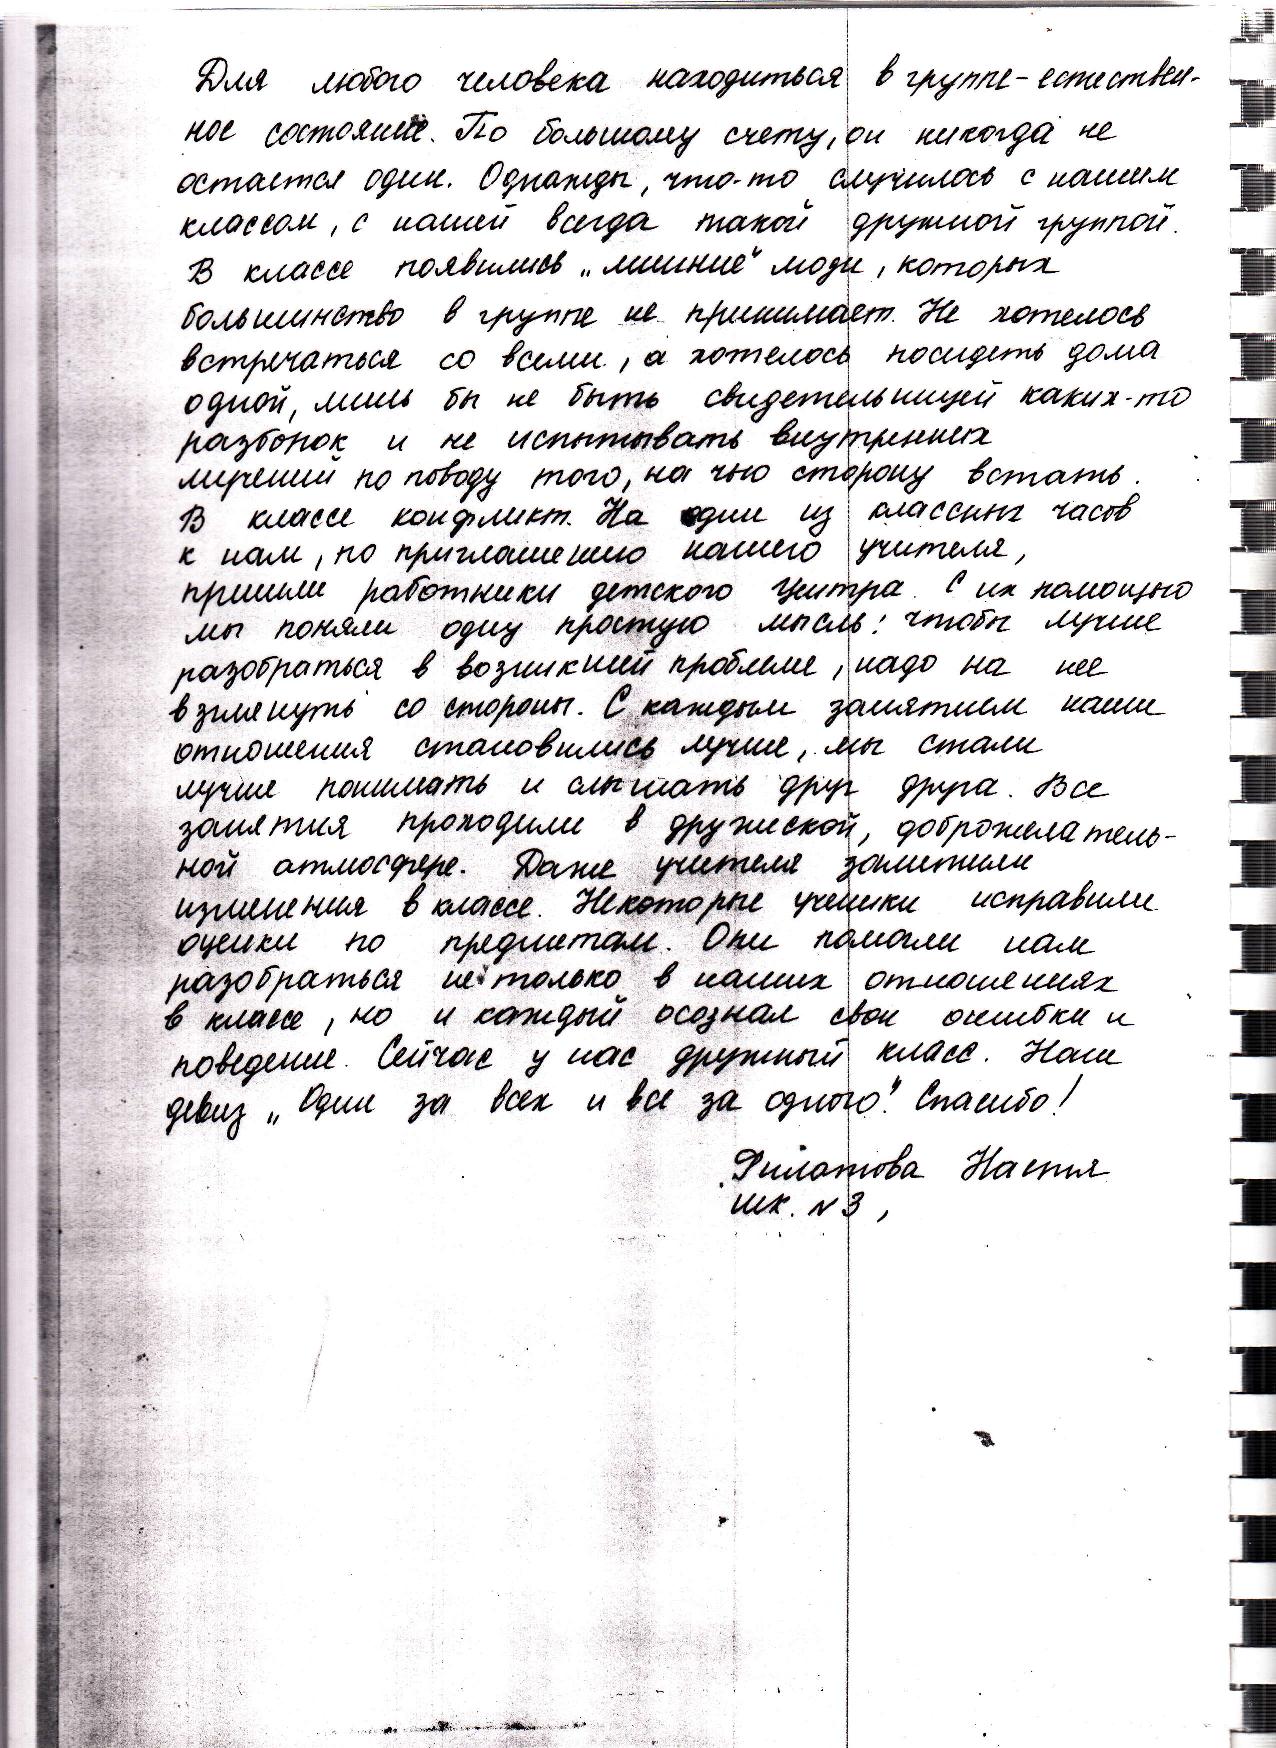 Для любого человека находиться в группе - естествен-
ное состояние. По большому счету, он никогда не
остается один. Однажды, что-то случилось с нашим
классом, с нашей всегда такой дружной группой.
В классе появились „лишние" люди, которых
большинство в группе не принимает. Не хотелось
встречаться со всеми, а хотелось посидеть дома
одной, лишь бы не быть свидетельницей каких-то
разборок и не испытывать внутренних
мучений по поводу того, на чью сторону встать.
В классе конфликт. На один из классных часов
к нам, по приглашению нашего учителя,
пришли работники детского центра. С их помощью
мы поняли одну простую мысль: чтобы лучше
разобраться в возникшей проблеме, надо на нее
взглянуть со стороны. С каждым занятием наши
отношения становились лучше, мы стали
лучше понимать и слышать друг друга. Все
занятия проходили в дружеской, доброжелатель-
ной атмосфере. Даже учителя заметили
изменения в классе. Некоторые ученики исправили
оценки по предметам. Они помогли нам
разобраться не только в наших отношениях
в классе, но и каждый осознал свои ошибки и
поведение. Сейчас у нас дружный класс. Наш
девиз „Один за всех и все за одного". Спасибо!
Филатова Настя
шк. №3,